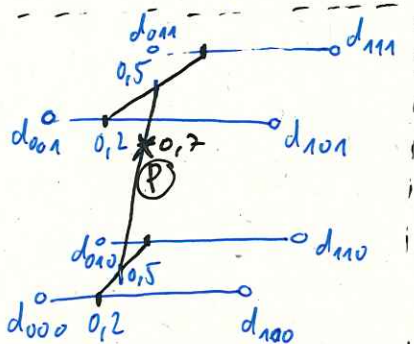 d011 d111
0,5
d001 0,2 0,7 d101
P
d010 d110
0,5
d000 0,2 d100